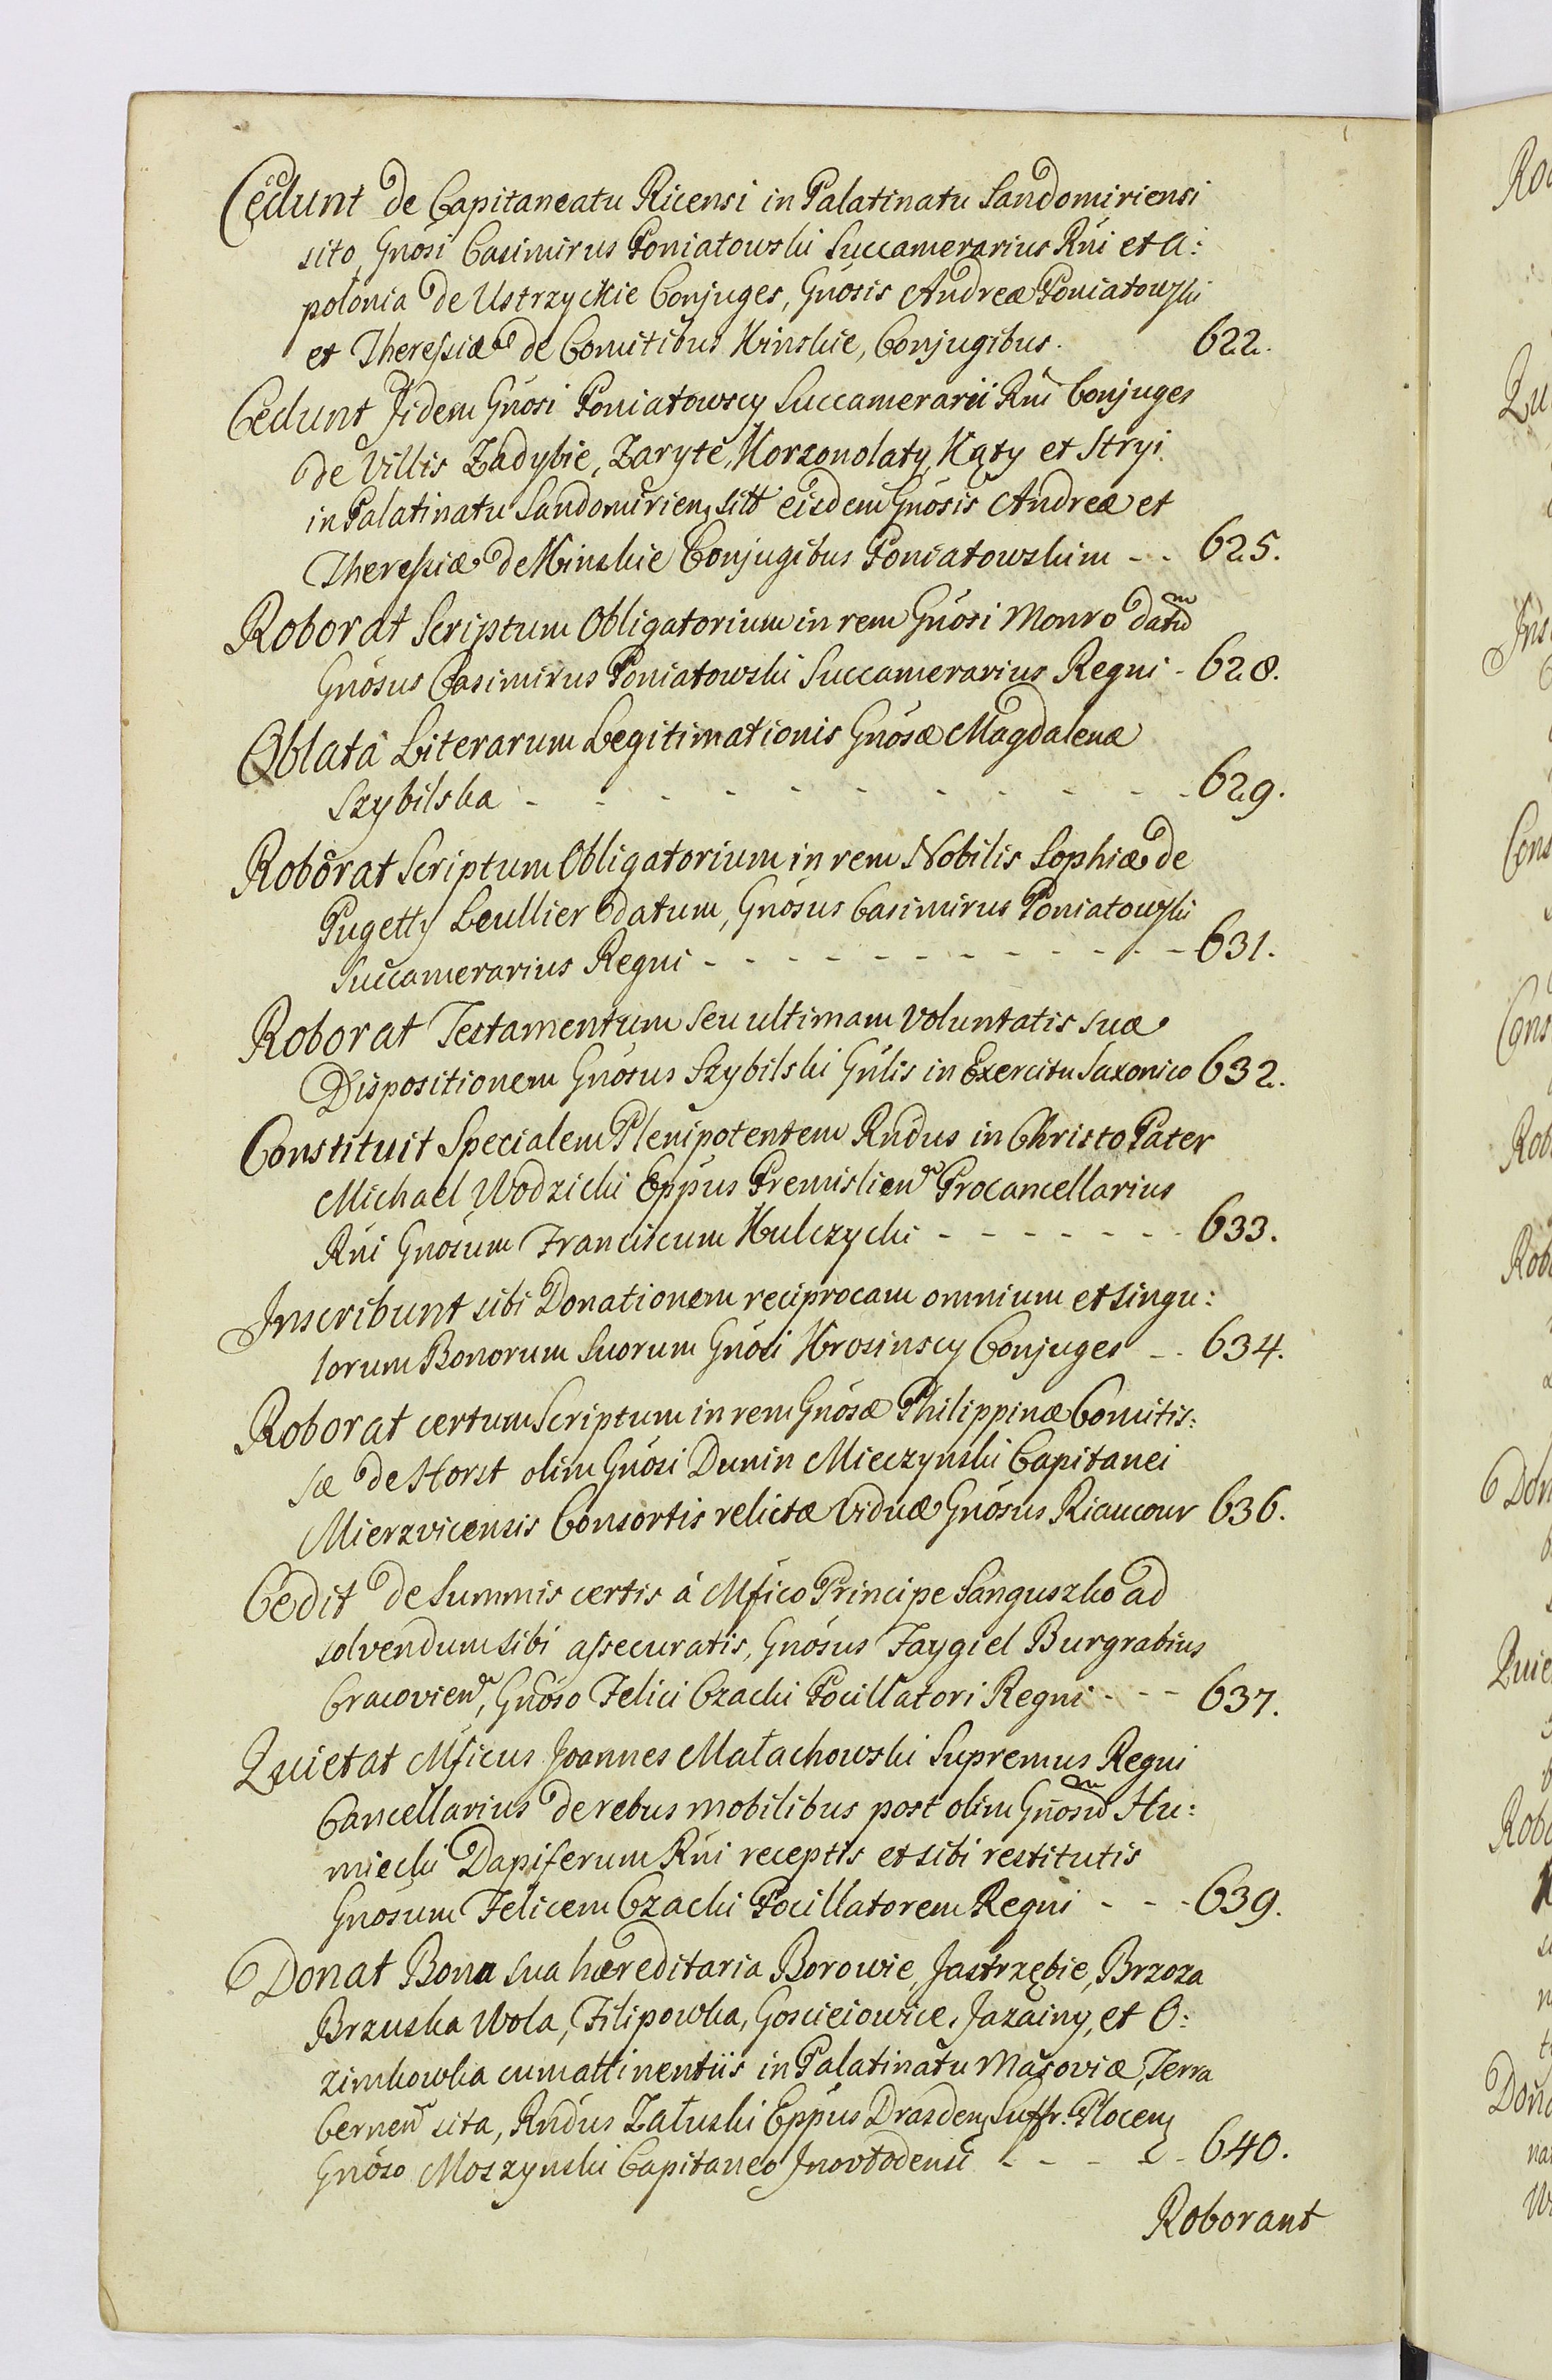 Cedunt de Capitaneatu Ricensi in Palatinatu Sandomiriensi
sito, Gnosi Casimirus Poniatowski Succamerarius Rni et A:
polonia de Ustrzyckie Conjuges, Gnosis Andreæ Poniatowski
et Theresiæ de Comitibus Kinskie, Conjugibus. 622.
Cedunt Jidem Gnosi Poniatowscy Succamerarii Rni Conjuges
de Villis Zadybie, Zaryte, Korzonolaty, Kąty et Stryi
in Palatinatu Sandomirien. sitt eisdem Gnosis Andreæ et
Theresiæ de Kinskie Conjugibus Poniatowskim - - 625.
Roborat Scriptum Obligatorium in rem Gnosi Monro datum
Gnosus Casimirus Poniatowski Succamerarius Regni - 628.
Oblata Literarum Legitimationis Gnosæ Magdalenæ
Szybilska - - - - - - - - - - - 629.
Roborat Scriptum Obligatorium in rem Nobilis Sophiæ de
Pugetty Leullier datum, Gnosus Casimirus Poniatowski
Succamerarius Regni - - - - - - - - - - - 631.
Roborat Testamentum seu ultimam Voluntatis suæ
Dispositionem Gnosus Szybilski Gnlis in Exercitu Saxonico 632.
Constituit Specialem Plenipotentem Rndus in Christo Pater
Michael Wodzicki Eppus Premislien. Procancellarius
Rni Gnosum Franciscum Kulczycki - - - - - - - 633.
Inscribunt sibi Donationem reciprocam omnium et singu:
lorum Bonorum suorum Gnosi Krosinscy Conjuges - - 634.
Roborat certum Scriptum in rem Gnosæ Philippinæ Comitis:
sæ de Horst olim Gnosi Dunin Mieczynski Capitanei
Mierzvicensis Consortis relictæ Viduæ Gnosus Riaucour 636.
Cedit de Summis certis á Mfico Principe Sanguszko ad
solvendum sibi assecuratis, Gnosus Faygiel Burgrabius
Cracovien., Gnoso Felici Czacki Pocillatori Regni - - - 637.
Quietat Mficus Joannes Małachowski Supremus Regni
Cancellarius de rebus mobilibus post olim Gnosum Hu:
miecki Dapiferum Rni receptis et sibi restitutis
Gnosum Felicem Czacki Pocillatorem Regni - - - 639.
Donat Bona sua hæreditaria Borowie, Jastrzębie, Brzoza
Brzuska Wola, Filipowka, Goscieiowice, Jazainy, et O:
zimkowka cum attinentiis in Palatinatu Masoviæ, Terra
Cernen. sita, Rndus Załuski Eppus Drasden. Suffr. Plocen.
Gnoso Moszynski Capitaneo Inovlodensi - - - - 640.
Roborant